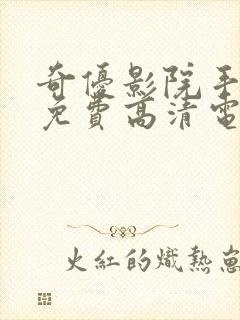 奇優影院手
免費高清電
火紅的熾熱